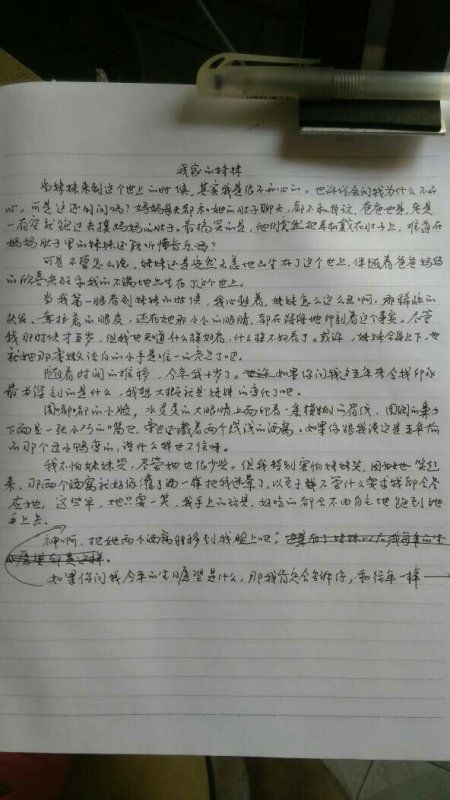 我家的妹妹
当妹妹来到这个世上的时候，其实我是很不开心的。也许你会问我为什么不开
心，可是这还用问吗？妈妈每天都和她的肚子聊天，都不和我说，爸爸也是，老是
一有空就跑过去摸妈妈的肚子。最搞笑的是，他们竟然把耳机戴在肚子上，难道在
妈妈肚子里的妹妹还能听懂音乐吗？
可是不管怎么说，妹妹还是安然无恙地出生在了这个世上，伴随着爸爸妈妈
的欣喜若狂和我的不满地出生在了这个世上。
当我第一眼看到妹妹的时候，我心想着，妹妹怎么这么丑啊，那稀疏的
头发，耷拉着的眼皮，还有她那小小的眼睛，都在深深地印刻着这个事实。尽管
我那时候才五岁，但我也知道什么样好看，什么样不好看了。或许，妹妹全身上下，也
就她那李嫩洁白的小手是唯一的亮点了吧。
随着时间的推移，今年我十岁了。如果你问我这五年来令我印象
最为深刻的是什么，我想大概就是妹妹的变化了吧。
圆嘟嘟的小脸，水灵灵的大眼睛上面印着一条长长的眉线，圆圆的鼻子
下面是一张小巧的嘴巴，旁边还藏着两个浅浅的酒窝。如果你跟我说这是五年前
的那个丑小鸭变的，说什么我也不信呀。
我不怕妹妹哭，尽管她也很少哭。但我特别害怕妹妹笑，因为她一笑起
来，那两个酒窝就好像灌了酒一样把我迷晕了，以至于无论什么要求我都会答
应她，这些年，她只要一笑，我手上的玩具，好吃的都会不由自主地跑到她
手上去。
神啊，把她两个酒窝转移到我脸上吧！
如果你问我今年的生日愿望是什么，那我肯定会告诉你，和往年一样——